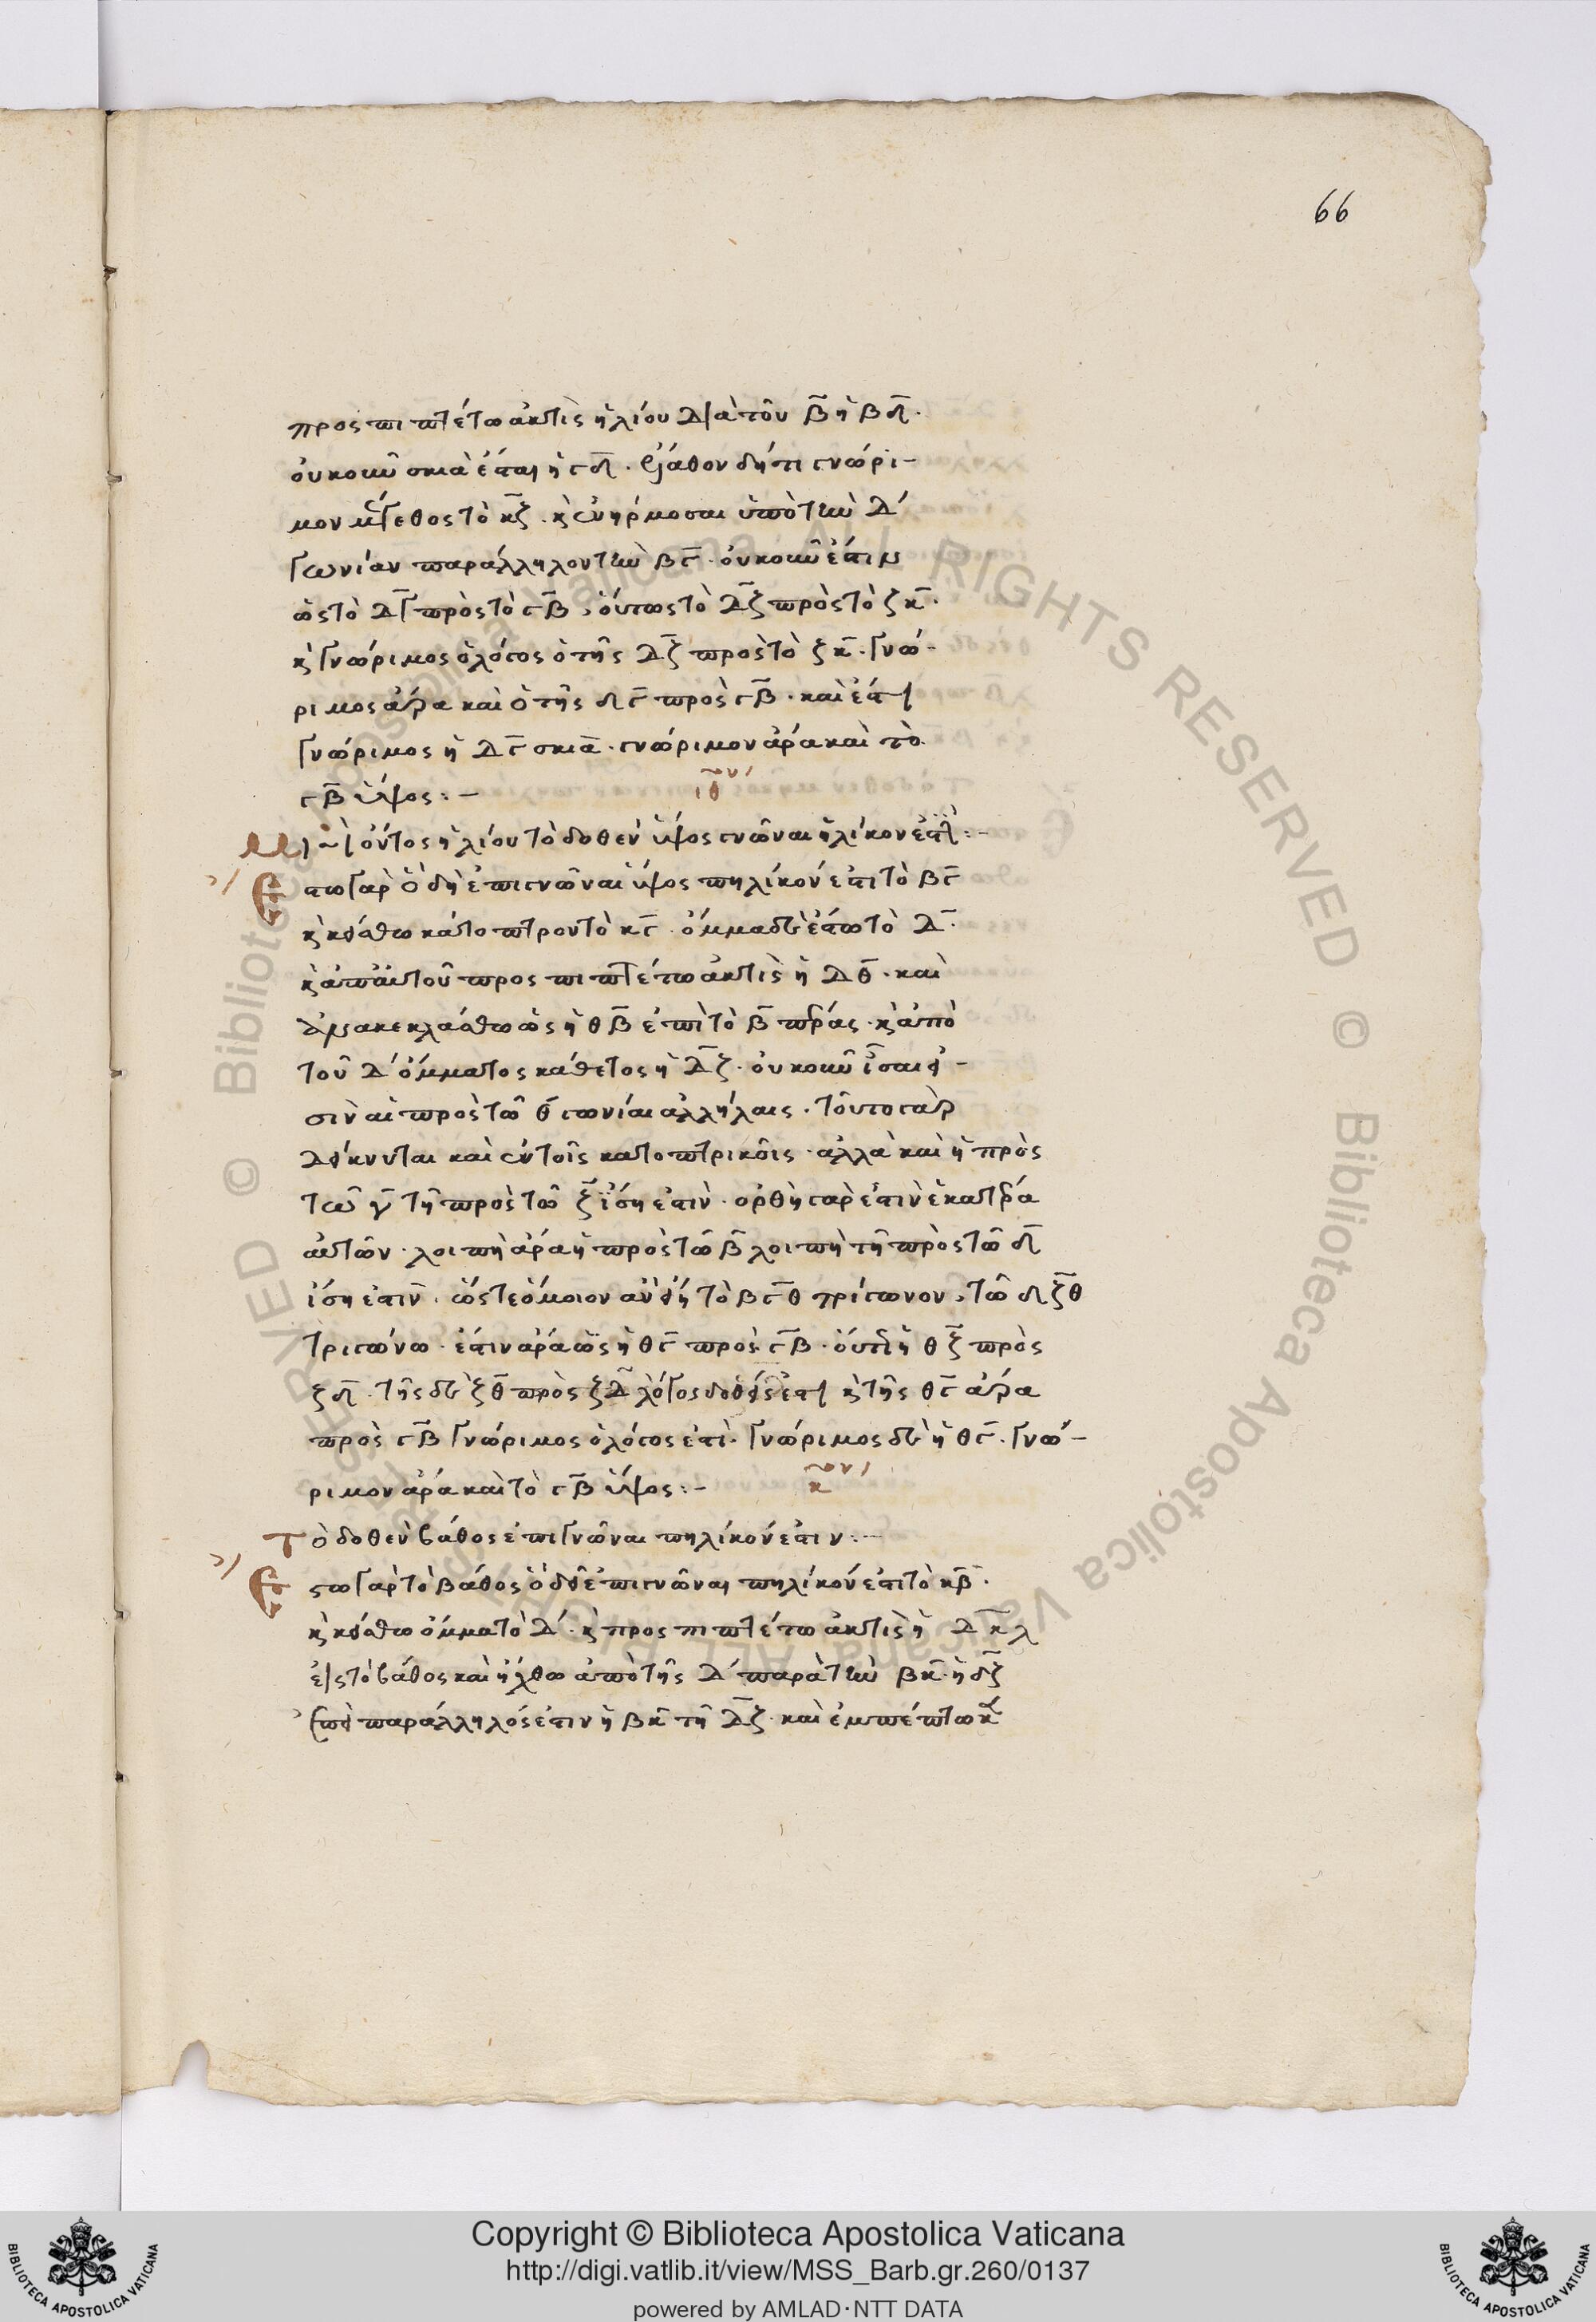 66
προσπιπτέτω ἀκτὶς ἡλίου διὰ τοῦ β ἡ βδ.
οὐκοῦν σκιὰ ἔσται ἡ γδ. εἰλήφθω δή τι γνώρι-
μον μέγεθος τὸ κζ. κὶ ἐνηρμόσθαι ὑπὸ τὴν δ
γωνίαν παράλληλον τὴν βγ. οὐκοῦν ἐστιν
ὡς τὸ δγ πρὸς τὸ γβ, οὕτως τὸ δζ πρὸς τὸ ζκ.
κὶ γνώριμος ὁ λόγος ὁ τῆς δζ πρὸς τὸ ζκ. γνώ-
ριμος ἄρα καὶ ὁ τῆς δγ πρὸς γβ. καὶ ἔστι
γνώριμος ἡ δγ σκιά. γνώριμον ἄρα καὶ τὸ
γβ ὕψος:-
ιθ
Μὴ ὄντος ἡλίου τὸ δοθὲν ὕψος γνῶναι ἡλίκον ἐστί:-
Ἔστω γὰρ ὃ δὴ ἐπιγνῶναι ὕψος πηλίκον ἐστὶ τὸ βγ
κὶ κείσθω κάτοπτρον τὸ κγ. ὄμμα δὲ ἔστω τὸ δ.
κὶ ἀπ' αὐτοῦ προσπιπτέτω ἀκτὶς ἡ δθ. καὶ
ἀνακεκλάσθω ὡς ἡ θβ ἐπὶ τὸ β πέρας. κὶ ἀπὸ
τοῦ δ ὄμματος κάθετος ἡ δζ. οὐκοῦν ἴσαι εἰ-
σὶν αἱ πρὸς τῶ θ γωνίαι ἀλλήλαις. τοῦτο γὰρ
δείκνυται καὶ ἐν τοῖς κατοπτρικοῖς. ἀλλὰ καὶ ἡ πρὸς
τῶ γ τῆ πρὸς τῶ ζ ἴση ἐστὶν. ὀρθὴ γὰρ ἐστὶν ἑκατέρα
αὐτῶν. λοιπὴ ἄρα ἡ πρὸς τῶ β λοιπὴ τῆ πρὸς τῶ δ
ἴση ἐστιν. ὥστε ὅμοιον ἂν εἴη τὸ βγθ τρίγωνον, τῶ δζθ
τριγώνω. ἔστιν ἄρα ὡς ἡ θγ πρὸς γβ. οὕτως ἡ θζ πρὸς
ζδ. τῆς δὲ ζθ πρὸς ζδ λόγος δοθείς ἐστι κὶ τῆς θγ ἄρα
πρὸς γβ γνώριμος ὁ λόγος ἐστὶ. γνώριμος δὲ ἡ θγ. γνώ-
ριμον ἄρα καὶ τὸ γβ ὕψος:-
κ
Τὸ δοθὲν βάθος ἐπιγνῶναι πηλίκον ἐστιν:-
Ἔστω γὰρ τὸ βάθος ὃ δεῖ ἐπιγνῶναι πηλίκον ἐστι τὸ κβ.
κὶ κείσθω ὄμμα τὸ δ. κὶ προσπιπτέτω ἀκτὶς ἡ δκλ
εἰς τὸ βάθος καὶ ἤχθω ἀπὸ τῆς δ παρὰ τὴν βκ ἡ δζ
ἐπεὶ παράλληλός ἐστιν ἡ βκ τῆ δζ. καὶ ἐμπέπτωκεν
Copyright © Biblioteca Apostolica Vaticana
http://digi.vatlib.it/view/MSS_Barb.gr.260/0137
powered by AMLAD·NTT DATA